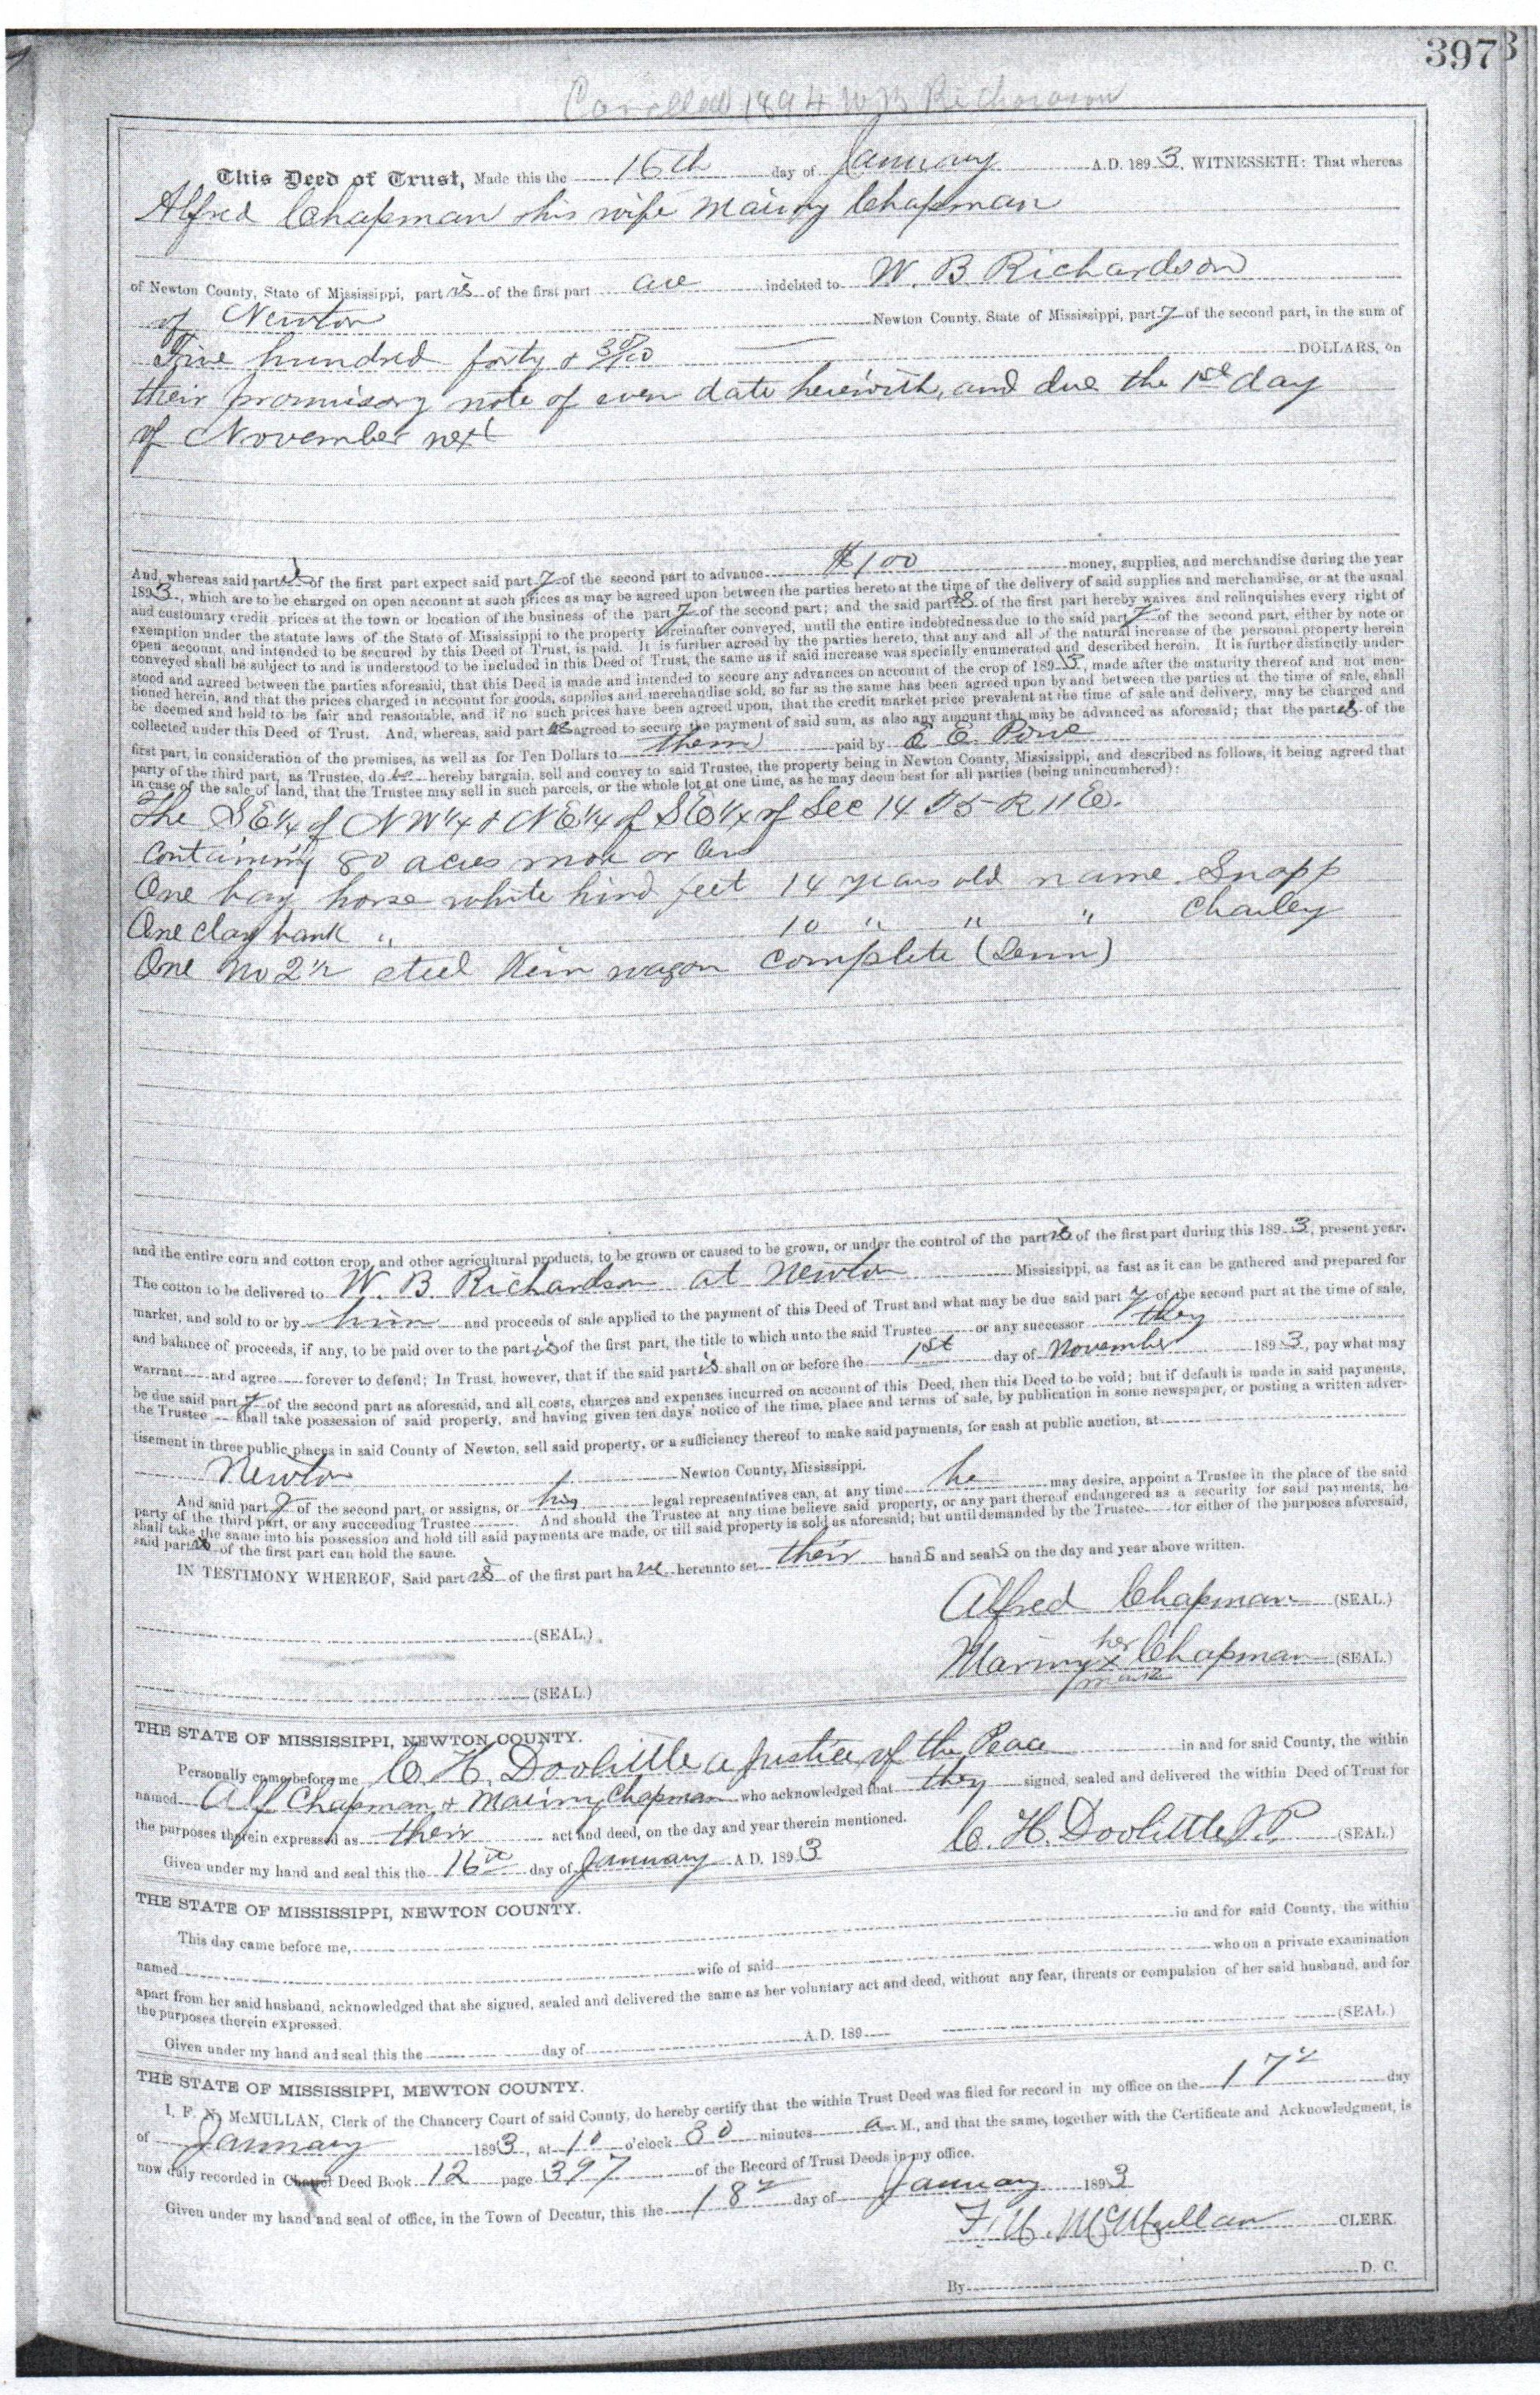 397
Cancelled 1894 W B Richardson
This Deed of Trust, Made this the 16th day of January A.D. 1893, WITNESSETH: That whereas
Alfred Chapman & his wife Chapman
of Newton County, State of Mississippi, part is of the first part are indebted to W. B. Richardson
of Newton Newton County, State of Mississippi, part y of the second part, in the sum of
Five hundred forty & 30/100 DOLLARS, on
their promissory note of even date herewith, and due the 1st day
of November next
And, whereas said part is of the first part expect said part y of the second part to advance $100 money, supplies, and merchandise during the year
1893, which are to be charged on open account at such prices as may be agreed upon between the parties hereto at the time of the delivery of said supplies and merchandise, or at the usual
and customary credit prices at the town or location of the business of the part y of the second part; and the said part is of the first part hereby waives and relinquishes every right of
exemption under the statute laws of the State of Mississippi to the property hereinafter conveyed, until the entire indebtedness due to the said part y of the second part, either by note or
open account, and intended to be secured by this Deed of Trust, is paid. It is further agreed by the parties hereto, that any and all of the natural increase of the personal property herein
conveyed shall be subject to and is understood to be included in this Deed of Trust, the same as if said increase was specially enumerated and described herein. It is further distinctly under-
stood and agreed between the parties aforesaid, that this Deed is made and intended to secure any advances on account of the crop of 1893, made after the maturity thereof and not men-
tioned herein, and that the prices charged in account for goods, supplies and merchandise sold, so far as the same has been agreed upon by and between the parties at the time of sale, shall
be deemed and held to be fair and reasonable, and if no such prices have been agreed upon, that the credit market price prevalent at the time of sale and delivery, may be charged and
collected under this Deed of Trust. And, whereas, said part is agreed to secure the payment of said sum, as also any amount that may be advanced as aforesaid; that the part is of the
first part, in consideration of the premises, as well as for Ten Dollars to them paid by E E
party of the third part, as Trustee, do hereby bargain, sell and convey to said Trustee, the property being in Newton County, Mississippi, and described as follows, it being agreed that
in case of the sale of land, that the Trustee may sell in such parcels, or the whole lot at one time, as he may deem best for all parties (being unincumbered):
The SE¼ of NW¼ & NE¼ of SE¼ of Sec 14 T5 R 11 E.
containing 80 acres more or less
One bay horse white hind feet 14 years old name Snapp
One clay bank " 10 " " " Charley
One No 2½ steel wagon complete
and the entire corn and cotton crop, and other agricultural products, to be grown or caused to be grown, or under the control of the part is of the first part during this 1893, present year.
The cotton to be delivered to W. B. Richardson at Newton Mississippi, as fast as it can be gathered and prepared for
market, and sold to or by him and proceeds of sale applied to the payment of this Deed of Trust and what may be due said part y of the second part at the time of sale,
and balance of proceeds, if any, to be paid over to the part is of the first part, the title to which unto the said Trustee or any successor they
warrant and agree forever to defend; In Trust, however, that if the said part is shall on or before the 1st day of November 1893, pay what may
be due said part y of the second part as aforesaid, and all costs, charges and expenses incurred on account of this Deed, then this Deed to be void; but if default is made in said payments,
the Trustee shall take possession of said property, and having given ten days' notice of the time, place and terms of sale, by publication in some newspaper, or posting a written adver-
tisement in three public places in said County of Newton, sell said property, or a sufficiency thereof to make said payments, for cash at public auction, at
Newton Newton County, Mississippi.
And said part y of the second part, or assigns, or his legal representatives can, at any time he may desire, appoint a Trustee in the place of the said
party of the third part, or any succeeding Trustee And should the Trustee at any time believe said property, or any part thereof endangered as a security for said payments, he
shall take the same into his possession and hold till said payments are made, or till said property is sold as aforesaid; but until demanded by the Trustee for either of the purposes aforesaid,
said part is of the first part can hold the same.
IN TESTIMONY WHEREOF, Said part is of the first part have hereunto set their hands and seals on the day and year above written.
Alfred Chapman (SEAL.)
(SEAL.)
her
x Chapman (SEAL.)
mark
(SEAL.)
THE STATE OF MISSISSIPPI, NEWTON COUNTY.
Personally came before me C. H. Doolittle a justice of the Peace in and for said County, the within
named Alf Chapman & Chapman who acknowledged that they signed, sealed and delivered the within Deed of Trust for
the purposes therein expressed as their act and deed, on the day and year therein mentioned.
Given under my hand and seal this the 16th day of January A.D. 1893 C. H. Doolittle J.P (SEAL.)
THE STATE OF MISSISSIPPI, NEWTON COUNTY.
This day came before me, in and for said County, the within
named wife of said who on a private examination
apart from her said husband, acknowledged that she signed, sealed and delivered the same as her voluntary act and deed, without any fear, threats or compulsion of her said husband, and for
the purposes therein expressed.
Given under my hand and seal this the day of A.D. 189 (SEAL.)
THE STATE OF MISSISSIPPI, MEWTON COUNTY.
I, F. N. McMULLAN, Clerk of the Chancery Court of said County, do hereby certify that the within Trust Deed was filed for record in my office on the 17 day
of January 1893, at 10 o'clock 30 minutes a M., and that the same, together with the Certificate and Acknowledgment, is
now duly recorded in Deed Book 12 page 397 of the Record of Trust Deeds in my office.
Given under my hand and seal of office, in the Town of Decatur, this the 18 day of January 1893
F. N. McMullan CLERK.
By D. C.